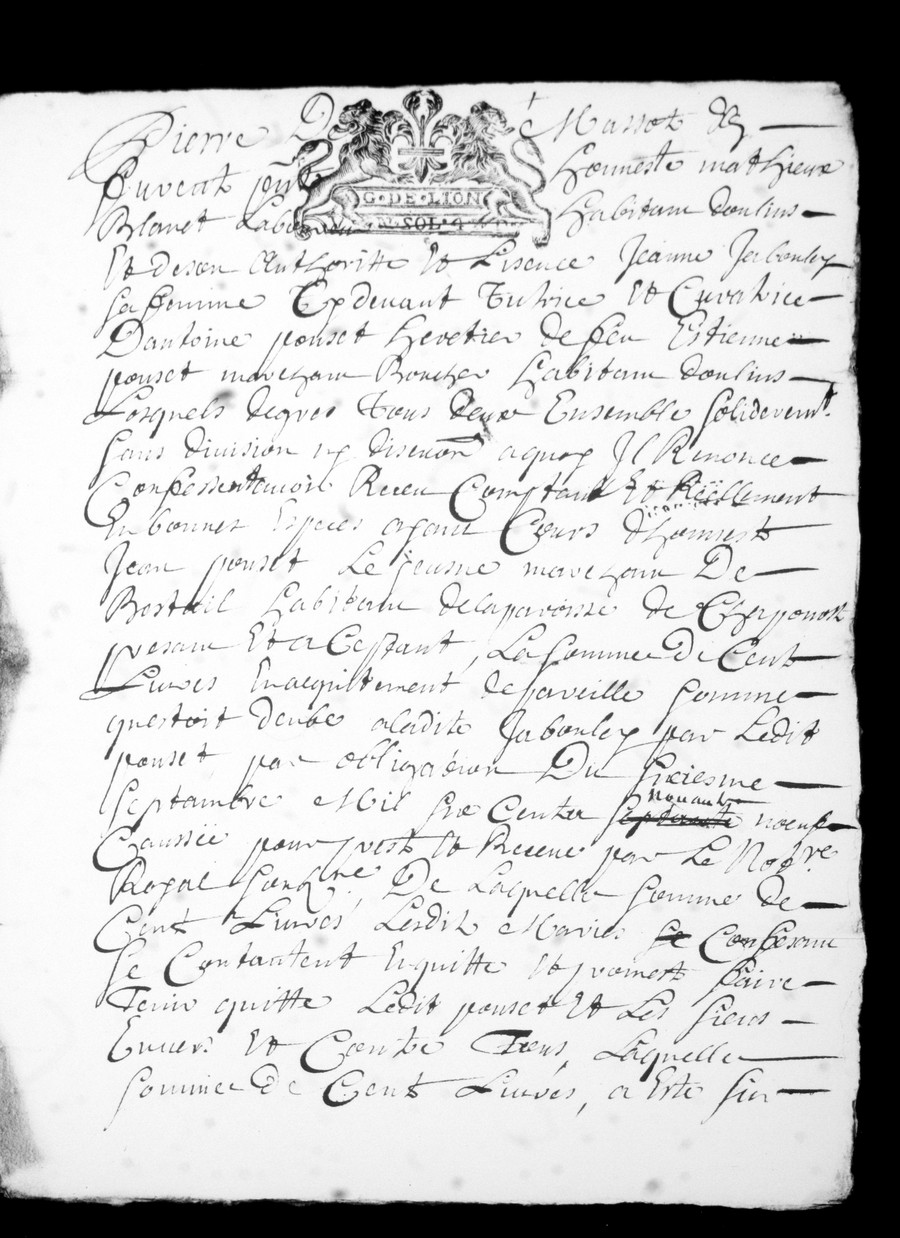 Pierre De Massot &
furent pnt honneste mathieu
Blanct Laboureur habitant doulins
Et de son Authoritte Et Lisence Jeanne Jabouley
sa femme Cy devant Tutrice Et Curatrice
Dantoine ponset heretier de feu Estienne
ponset marchant Boucher habitant doulins
Lesquels de gres Tous deux Ensemble solideremt
sans division ny discution a quoy Il Renonce
Confessent avoir Receu Comptant Et Reellement
En bonnes Especes ayant Cours dhonneste
Jean ponset Le jeusne marchant De
Bestail habitant de la paroisse de Chaponost
presant Et acCeptant, La somme De Cent
Livres En acquittement de pareille somme
questoit deube a ladite Jabouley par Ledit
ponset par obligation Du sixiesme
septambre Mil six Cents septante nonante noeuf
Caussée pour prest Et Receue par Le Notre
Royal soubzne, De Laquelle somme de
Cent Livres Lesdits Maries se Confessant
se Contantent En quitte Et promest faire
Tenir quitte Ledit ponset Et Les siens
Envers Et Contre Tous, Laquelle
somme De Cent Livres, a Este sur
G·DE·LION
SOL·4